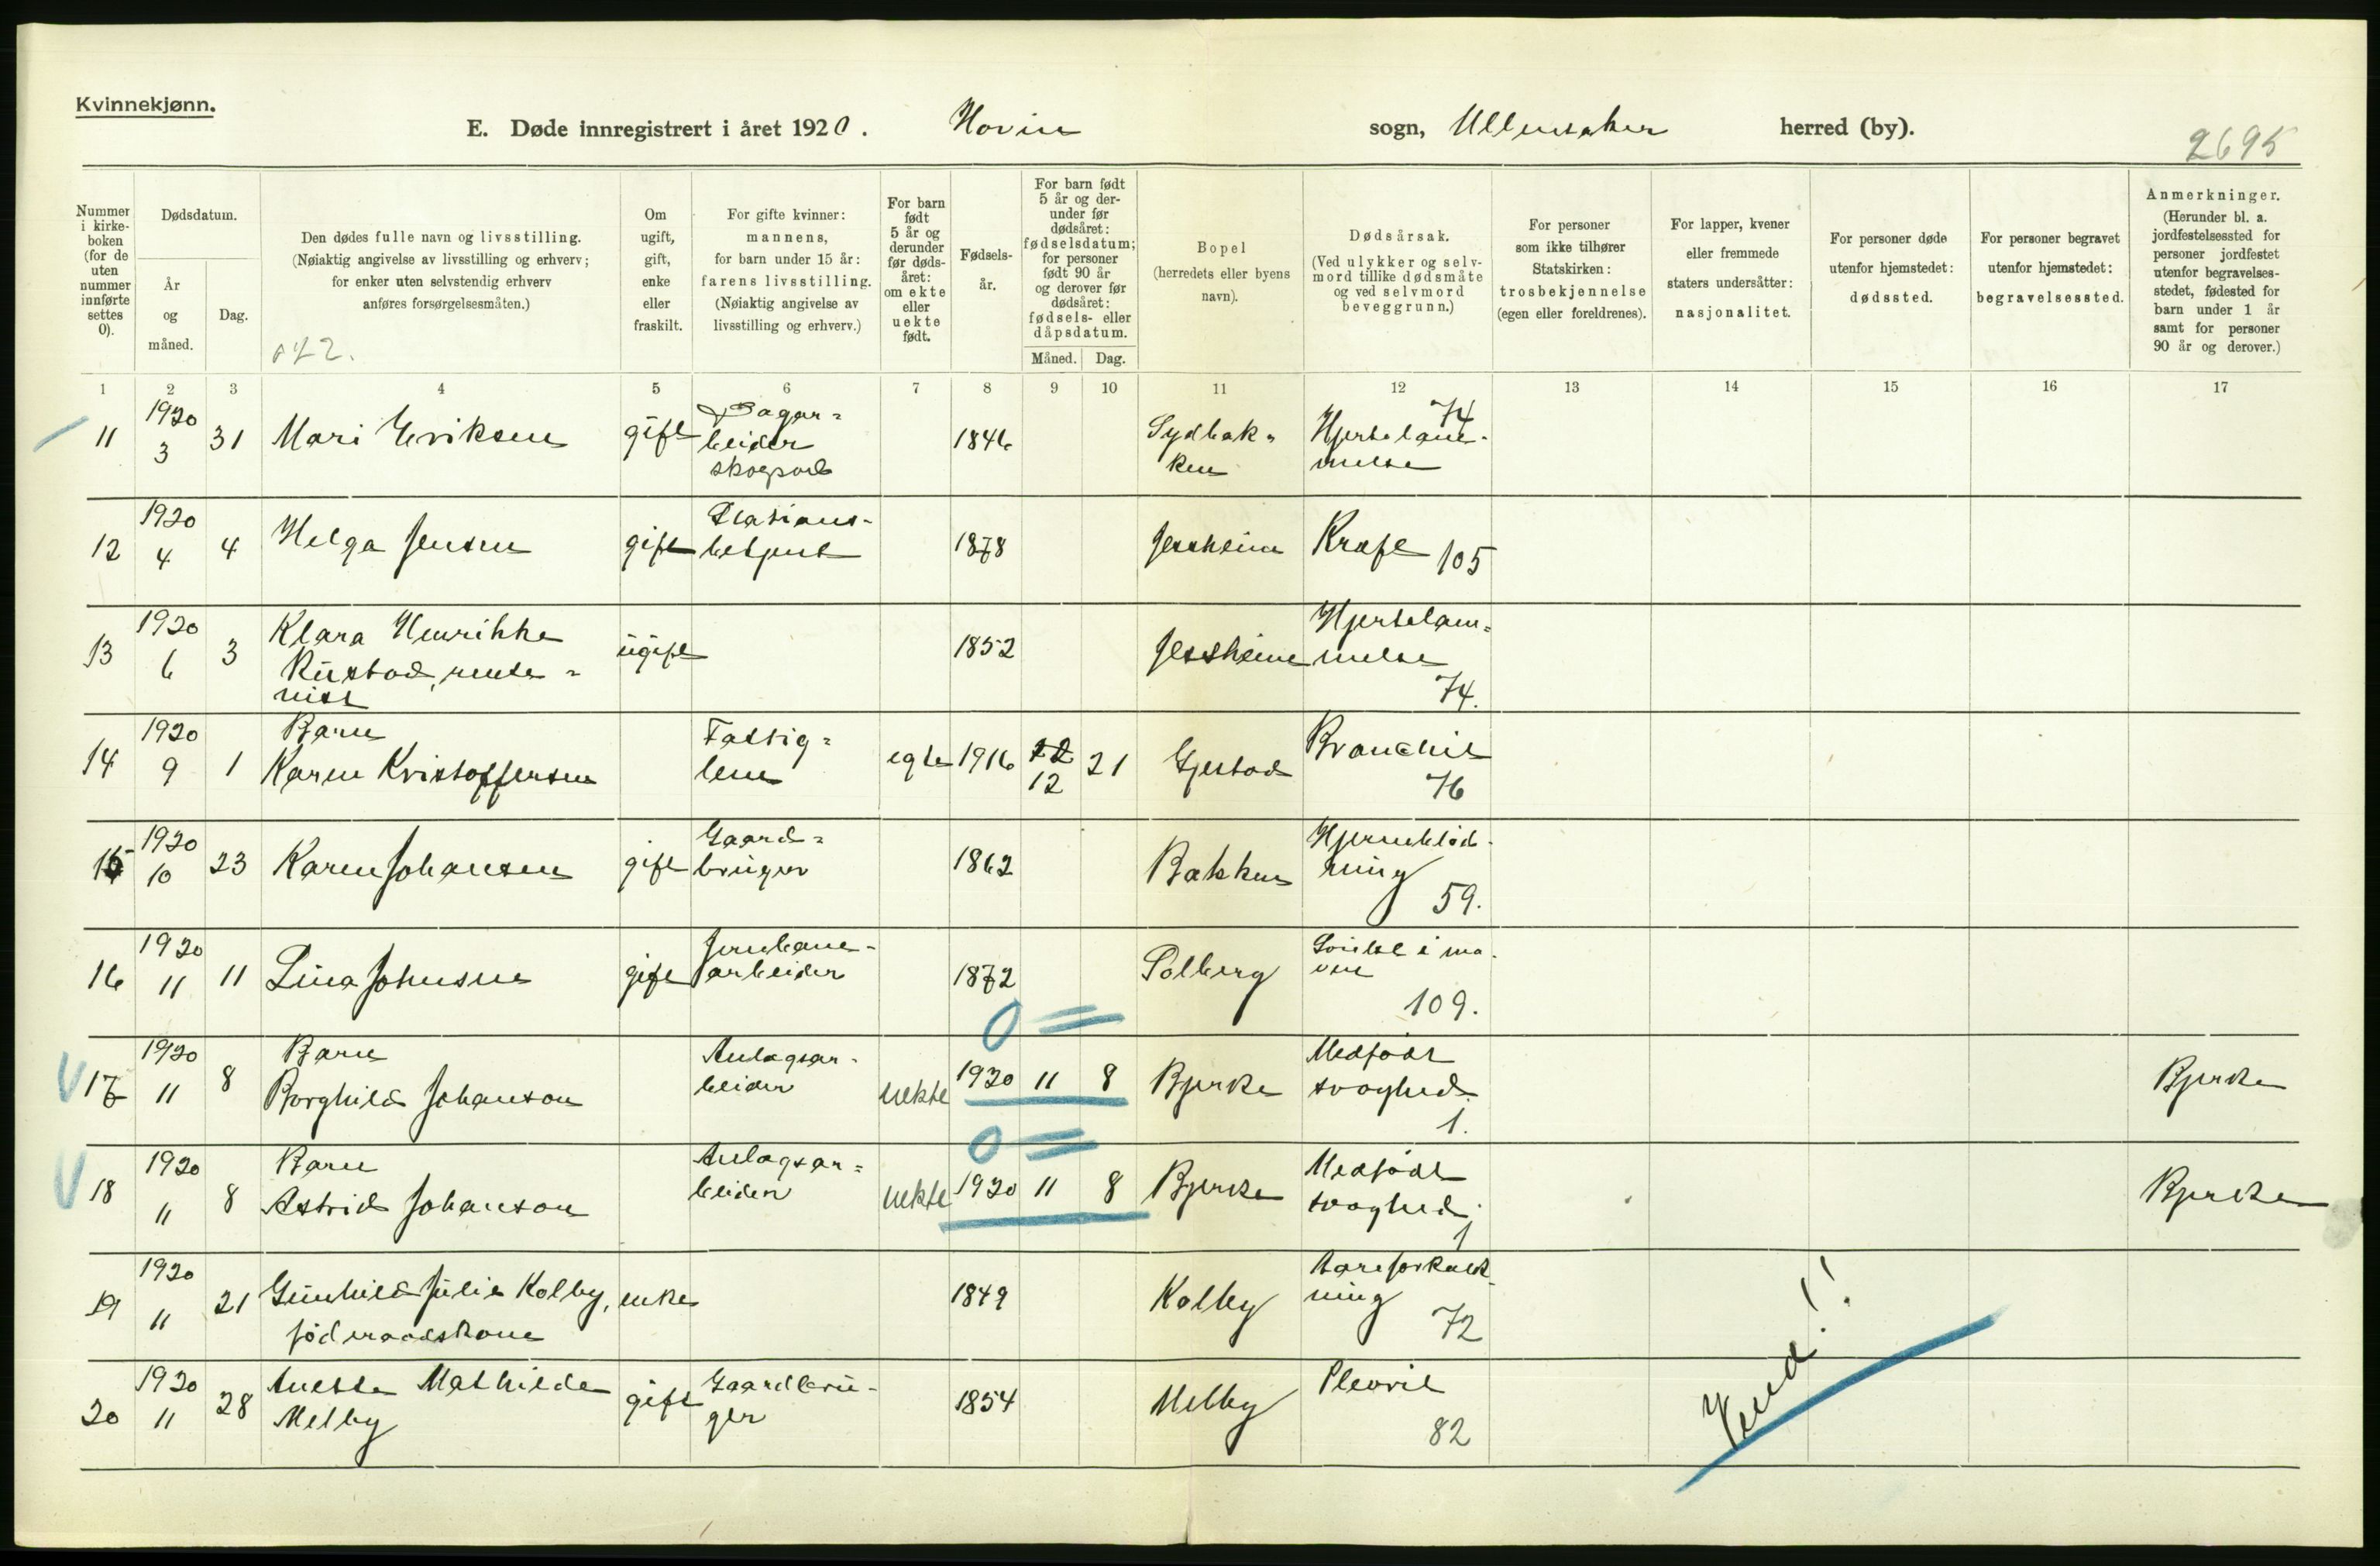 Kvinnekjønn.
E. Døde innregistrert i året 1920. Hovin sogn, Ullensaker herred (by).
2695
Nummer i kirke-boken (for de uten nummer innførte settes 0).
Dødsdatum.
År og måned.
Dag.
Den dødes fulle navn og livsstilling.
(Nøiaktig angivelse av livsstilling og erhverv;
for enker uten selvstendig erhverv
anføres forsørgelsesmåten.)
Om ugift, gift, enke eller fraskilt.
For gifte kvinner:
mannens,
for barn under 15 år:
farens livsstilling.
(Nøiaktig angivelse av
livsstilling og erhverv.)
For barn født 5 år og derunder før døds-året: om ekte eller uekte født.
Fødsels-år.
For barn født 5 år og der-under før dødsåret: fødselsdatum; for personer født 90 år og derover før dødsåret: fødsels- eller dåpsdatum.
Måned. Dag.
Bopel
(herredets eller byens navn).
Dødsårsak.
(Ved ulykker og selv-mord tillike dødsmåte og ved selvmord beveggrunn.)
For personer som ikke tilhører Statskirken: trosbekjennelse (egen eller foreldrenes).
For lapper, kvener eller fremmede staters undersåtter: nasjonalitet.
For personer døde utenfor hjemstedet: dødssted.
For personer begravet utenfor hjemstedet: begravelsessted.
Anmerkninger.
(Herunder bl. a. jordfestelsessted for personer jordfestet utenfor begravelses-stedet, fødested for barn under 1 år samt for personer 90 år og derover.)
1 2 3 4 5 6 7 8 9 10 11 12 13 14 15 16 17
11 1920 3 31 Mari Eriksen gift Dagar=beider 1846 Sydbak=ken Hjertelam-melse 74
12 1920 4 4 Helga Jensen gift Stasions-betjent 1878 Jessheim Kræft 105
13 1920 6 3 Klara Henrikke Rustad, rente=nist ugift 1852 Jessheim Hjertelam=melse 74.
14 1920 9 1 Barn Karen Kristoffersen Fattig=lem egte 1916 12 12 21 Gjestad Bronchit 76
15 1920 10 23 Karen Johansen gift Gaard=bruger 1862 Bakken Hjerneblöd-ning 59.
16 1920 11 11 Lina Johnsen gift Jernbane-arbeider 1872 Solberg Svulst i ma-ven 109.
0 =
17 1920 11 8 Barn Borghild Johanson Anlagsar-beider uekte 1920 11 8 Bjerke Medfödt svaghed. 1. Bjerke
0 =
18 1920 11 8 Barn Astrid Johanson Anlagsar=beider uekte 1920 11 8 Bjerke Medfödt svaghed. 1 Bjerke
19 1920 11 21 Gunhild Julie Kolby, föderaadskone enke 1849 Kolby Aareforkalk-ning 72
20 1920 11 28 Anette Mathilde Melby gift Gaardbru-ger 1854 Melby Plevrit 82
Vend!!